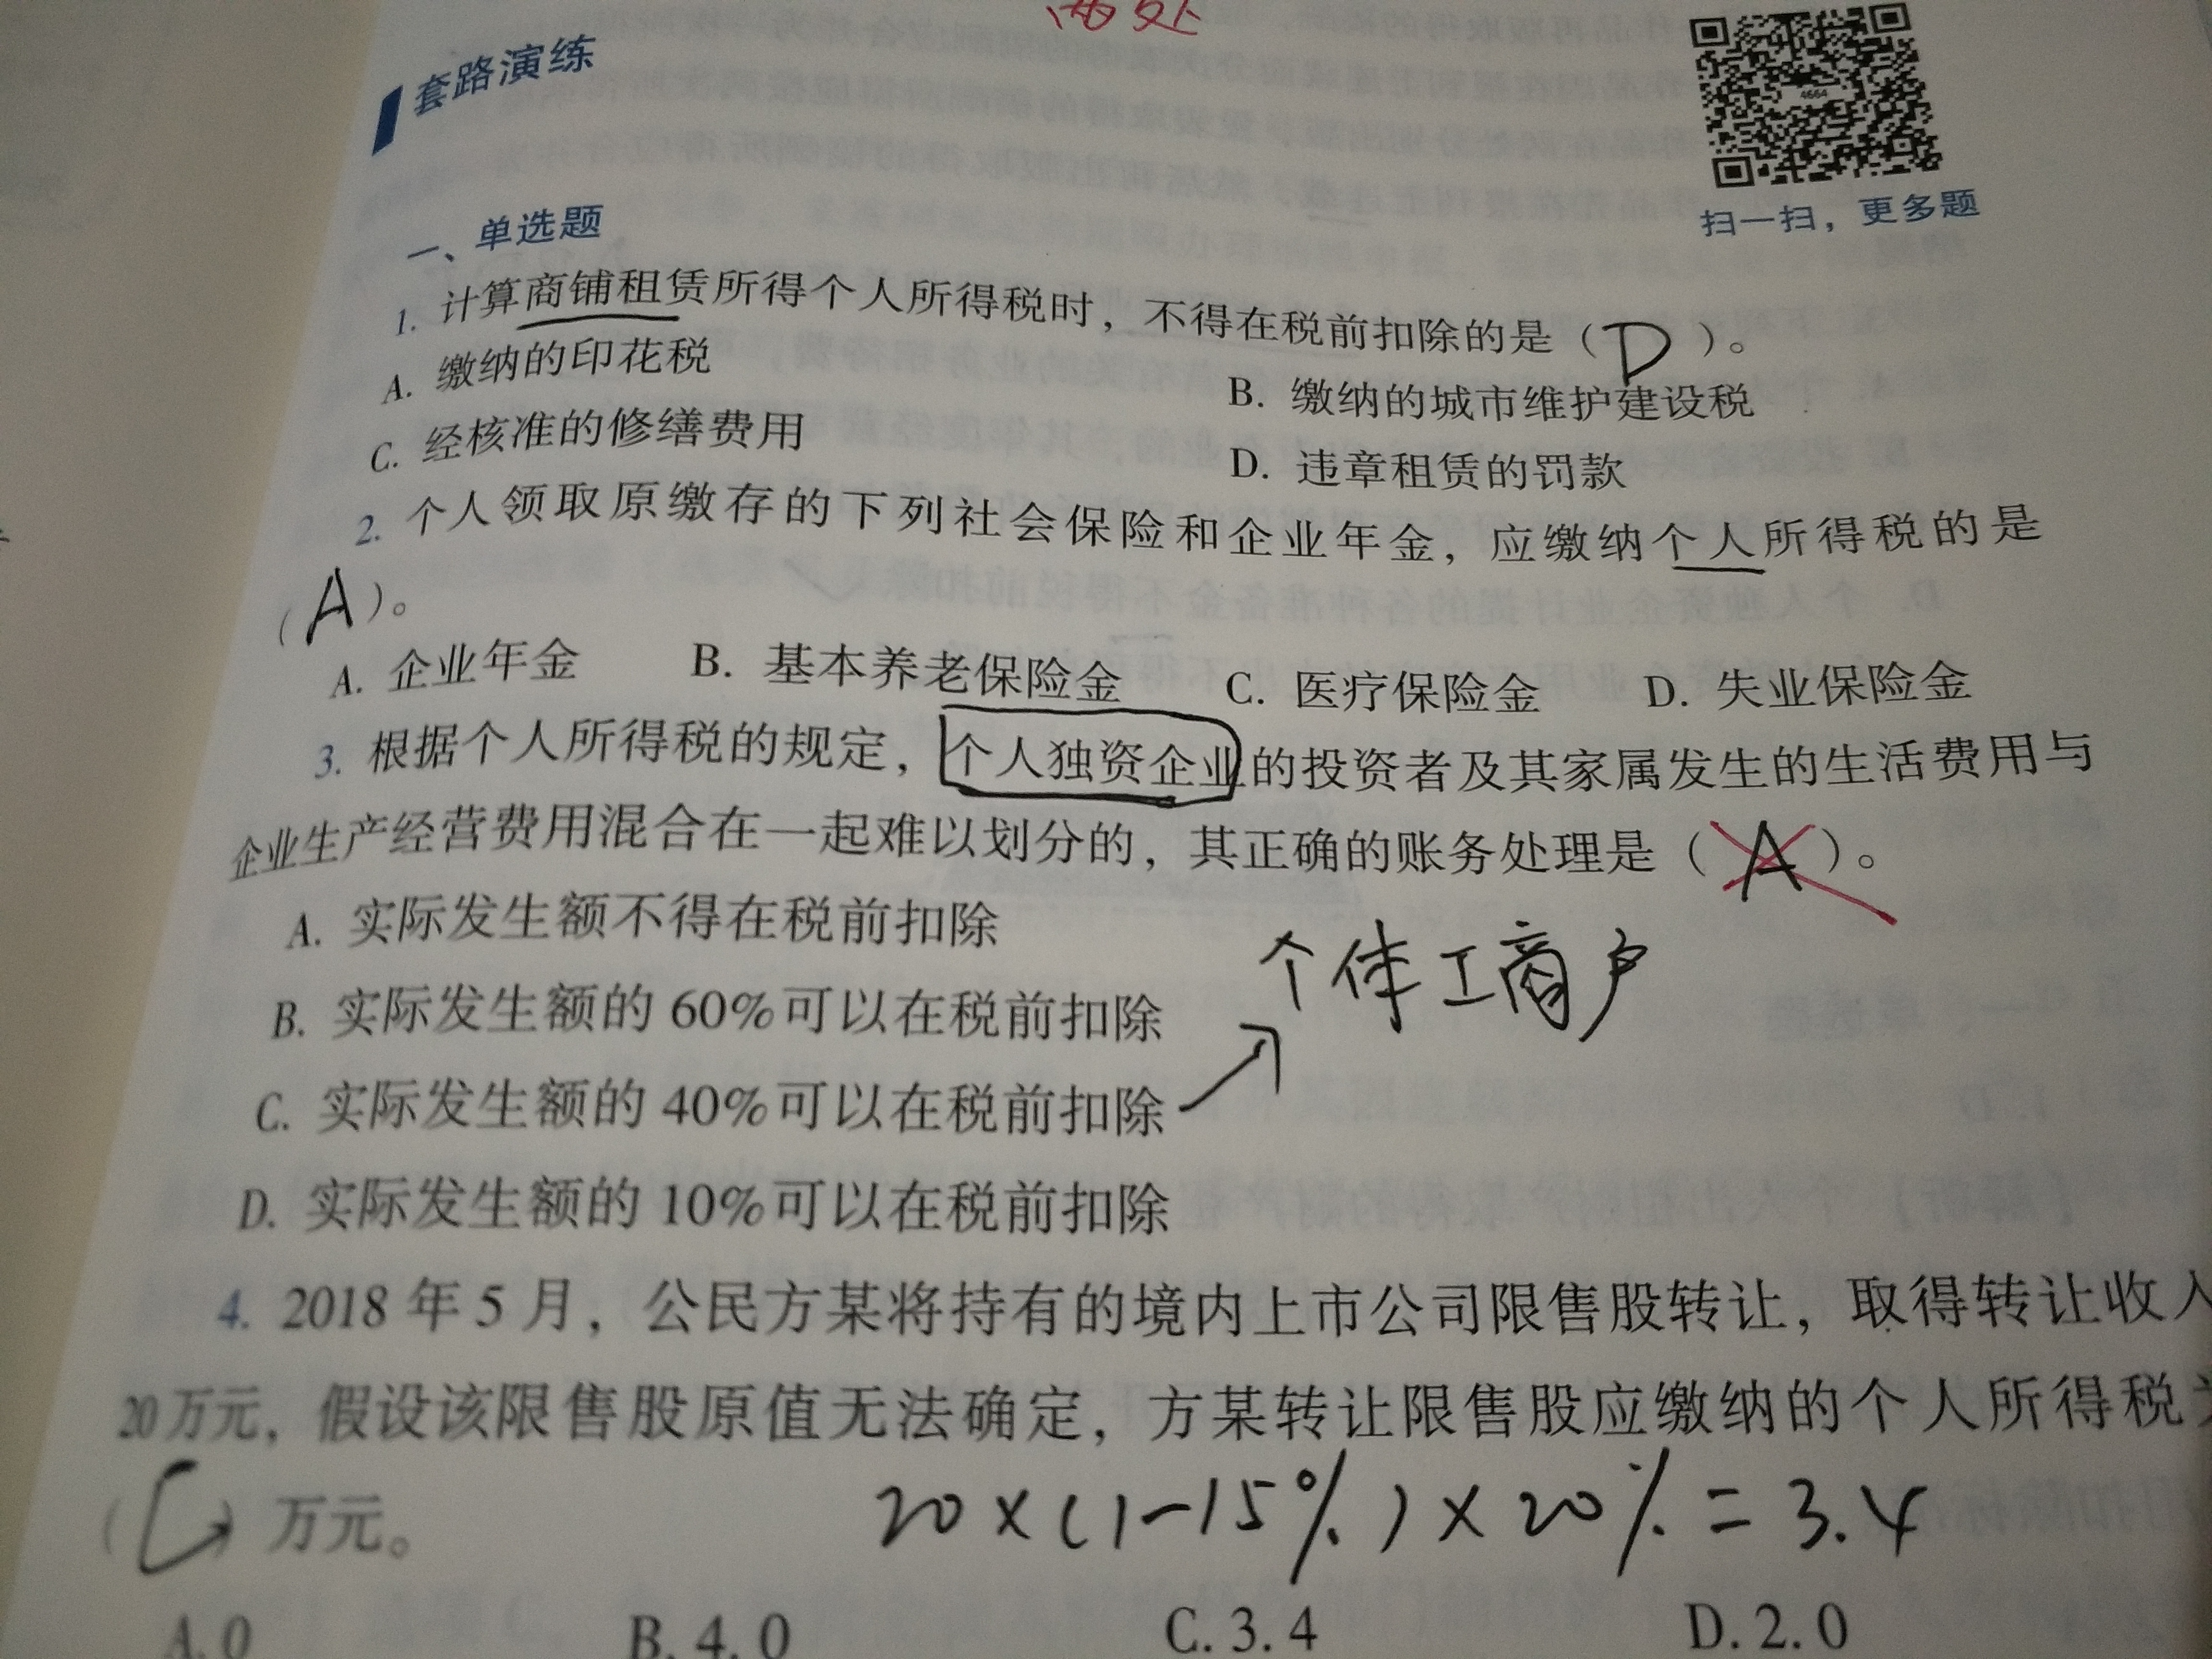 套路演练
4664
扫一扫，更多题
一、单选题
1. 计算商铺租赁所得个人所得税时，不得在税前扣除的是（D）。
A. 缴纳的印花税
B. 缴纳的城市维护建设税
C. 经核准的修缮费用
D. 违章租赁的罚款
2. 个人领取原缴存的下列社会保险和企业年金，应缴纳个人所得税的是
（A）。
A. 企业年金 B. 基本养老保险金 C. 医疗保险金 D. 失业保险金
3. 根据个人所得税的规定，个人独资企业的投资者及其家属发生的生活费用与
企业生产经营费用混合在一起难以划分的，其正确的账务处理是（A）。
A. 实际发生额不得在税前扣除
个体工商户
B. 实际发生额的 60%可以在税前扣除
C. 实际发生额的 40%可以在税前扣除
D. 实际发生额的 10%可以在税前扣除
4. 2018 年 5 月，公民方某将持有的境内上市公司限售股转让，取得转让收入
20万元，假设该限售股原值无法确定，方某转让限售股应缴纳的个人所得税
（C）万元。
20×(1-15%)×20%=3.4
A. 0 B. 4. 0 C. 3. 4 D. 2. 0